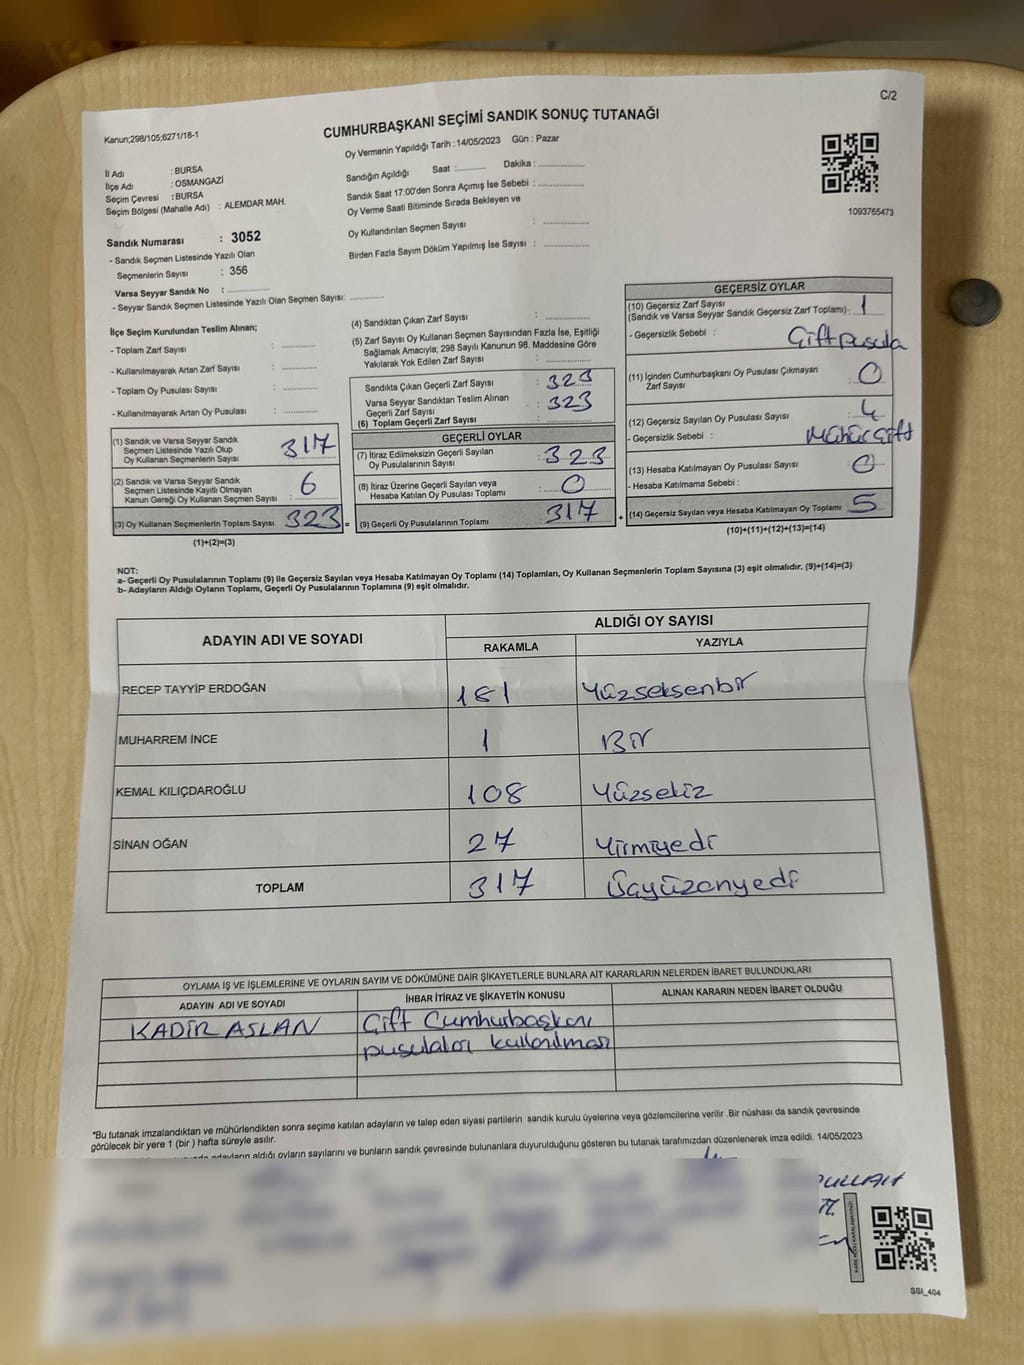 C/2
Kanun;298/105;6271/18-1
CUMHURBAŞKANI SEÇİMİ SANDIK SONUÇ TUTANAĞI
Oy Vermenin Yapıldığı Tarih :14/05/2023 Gün : Pazar
İl Adı : BURSA
İlçe Adı : OSMANGAZİ
Seçim Çevresi : BURSA
Seçim Bölgesi (Mahalle Adı) : ALEMDAR MAH.
Sandığın Açıldığı Saat :.......... Dakika : ..............
Sandık Saat 17:00'den Sonra Açımış İse Sebebi : ..............
Oy Verme Saati Bitiminde Sırada Bekleyen ve
Oy Kullandırılan Seçmen Sayısı : ..............
Birden Fazla Sayım Döküm Yapılmış İse Sayısı : ..............
1093765473
Sandık Numarası : 3052
- Sandık Seçmen Listesinde Yazılı Olan
Seçmenlerin Sayısı : 356
Varsa Seyyar Sandık No : ..............
- Seyyar Sandık Seçmen Listesinde Yazılı Olan Seçmen Sayısı: ..............
İlçe Seçim Kurulundan Teslim Alınan;
- Toplam Zarf Sayısı : ..............
- Kullanılmayarak Artan Zarf Sayısı : ..............
- Toplam Oy Pusulası Sayısı : ..............
- Kullanılmayarak Artan Oy Pusulası : ..............
(1) Sandık ve Varsa Seyyar Sandık
Seçmen Listesinde Yazılı Olup
Oy Kullanan Seçmenlerin Sayısı : 317
(2) Sandık ve Varsa Seyyar Sandık
Seçmen Listesinde Kayıtlı Olmayan
Kanun Gereği Oy Kullanan Seçmen Sayısı : 6
(3) Oy Kullanan Seçmenlerin Toplam Sayısı : 323 =
(1)+(2)=(3)
(4) Sandıktan Çıkan Zarf Sayısı : ..............
(5) Zarf Sayısı Oy Kullanan Seçmen Sayısından Fazla İse, Eşitliği
Sağlamak Amacıyla; 298 Sayılı Kanunun 98. Maddesine Göre
Yakılarak Yok Edilen Zarf Sayısı : ..............
Sandıkta Çıkan Geçerli Zarf Sayısı : 323
Varsa Seyyar Sandıktan Teslim Alınan
Geçerli Zarf Sayısı : 323
(6) Toplam Geçerli Zarf Sayısı :
GEÇERLİ OYLAR
(7) İtiraz Edilmeksizin Geçerli Sayılan
Oy Pusulalarının Sayısı : 323
(8) İtiraz Üzerine Geçerli Sayılan veya
Hesaba Katılan Oy Pusulası Toplamı : 0
(9) Geçerli Oy Pusulalarının Toplamı : 317 +
GEÇERSİZ OYLAR
(10) Geçersiz Zarf Sayısı
(Sandık ve Varsa Seyyar Sandık Geçersiz Zarf Toplamı) : 1
- Geçersizlik Sebebi : Çift pusula
(11) İçinden Cumhurbaşkanı Oy Pusulası Çıkmayan
Zarf Sayısı : 0
(12) Geçersiz Sayılan Oy Pusulası Sayısı : 4
- Geçersizlik Sebebi : Mühürçift
(13) Hesaba Katılmayan Oy Pusulası Sayısı : 0
- Hesaba Katılmama Sebebi :
(14) Geçersiz Sayılan veya Hesaba Katılmayan Oy Toplamı : 5
(10)+(11)+(12)+(13)=(14)
NOT:
a- Geçerli Oy Pusulalarının Toplamı (9) ile Geçersiz Sayılan veya Hesaba Katılmayan Oy Toplamı (14) Toplamları, Oy Kullanan Seçmenlerin Toplam Sayısına (3) eşit olmalıdır. (9)+(14)=(3)
b- Adayların Aldığı Oyların Toplamı, Geçerli Oy Pusulalarının Toplamına (9) eşit olmalıdır.
ADAYIN ADI VE SOYADI ALDIĞI OY SAYISI
RAKAMLA YAZIYLA
RECEP TAYYİP ERDOĞAN 181 Yüzseksenbir
MUHARREM İNCE 1 Bir
KEMAL KILIÇDAROĞLU 108 Yüzsekiz
SİNAN OĞAN 27 Yirmiyedi
TOPLAM 317 Üçyüzonyedi
OYLAMA İŞ VE İŞLEMLERİNE VE OYLARIN SAYIM VE DÖKÜMÜNE DAİR ŞİKAYETLERLE BUNLARA AİT KARARLARIN NELERDEN İBARET BULUNDUKLARI
ADAYIN ADI VE SOYADI İHBAR İTİRAZ VE ŞİKAYETİN KONUSU ALINAN KARARIN NEDEN İBARET OLDUĞU
KADİR ASLAN Çift Cumhurbaşkanı
pusulaları kullanılması
*Bu tutanak imzalandıktan ve mühürlendikten sonra seçime katılan adayların ve talep eden siyasi partilerin sandık kurulu üyelerine veya gözlemcilerine verilir .Bir nüshası da sandık çevresinde
görülecek bir yere 1 (bir ) hafta süreyle asılır.
adayların aldığı oyların sayılarını ve bunların sandık çevresinde bulunanlara duyurulduğunu gösteren bu tutanak tarafımızdan düzenlenerek imza edildi. 14/05/2023
SSİ_404